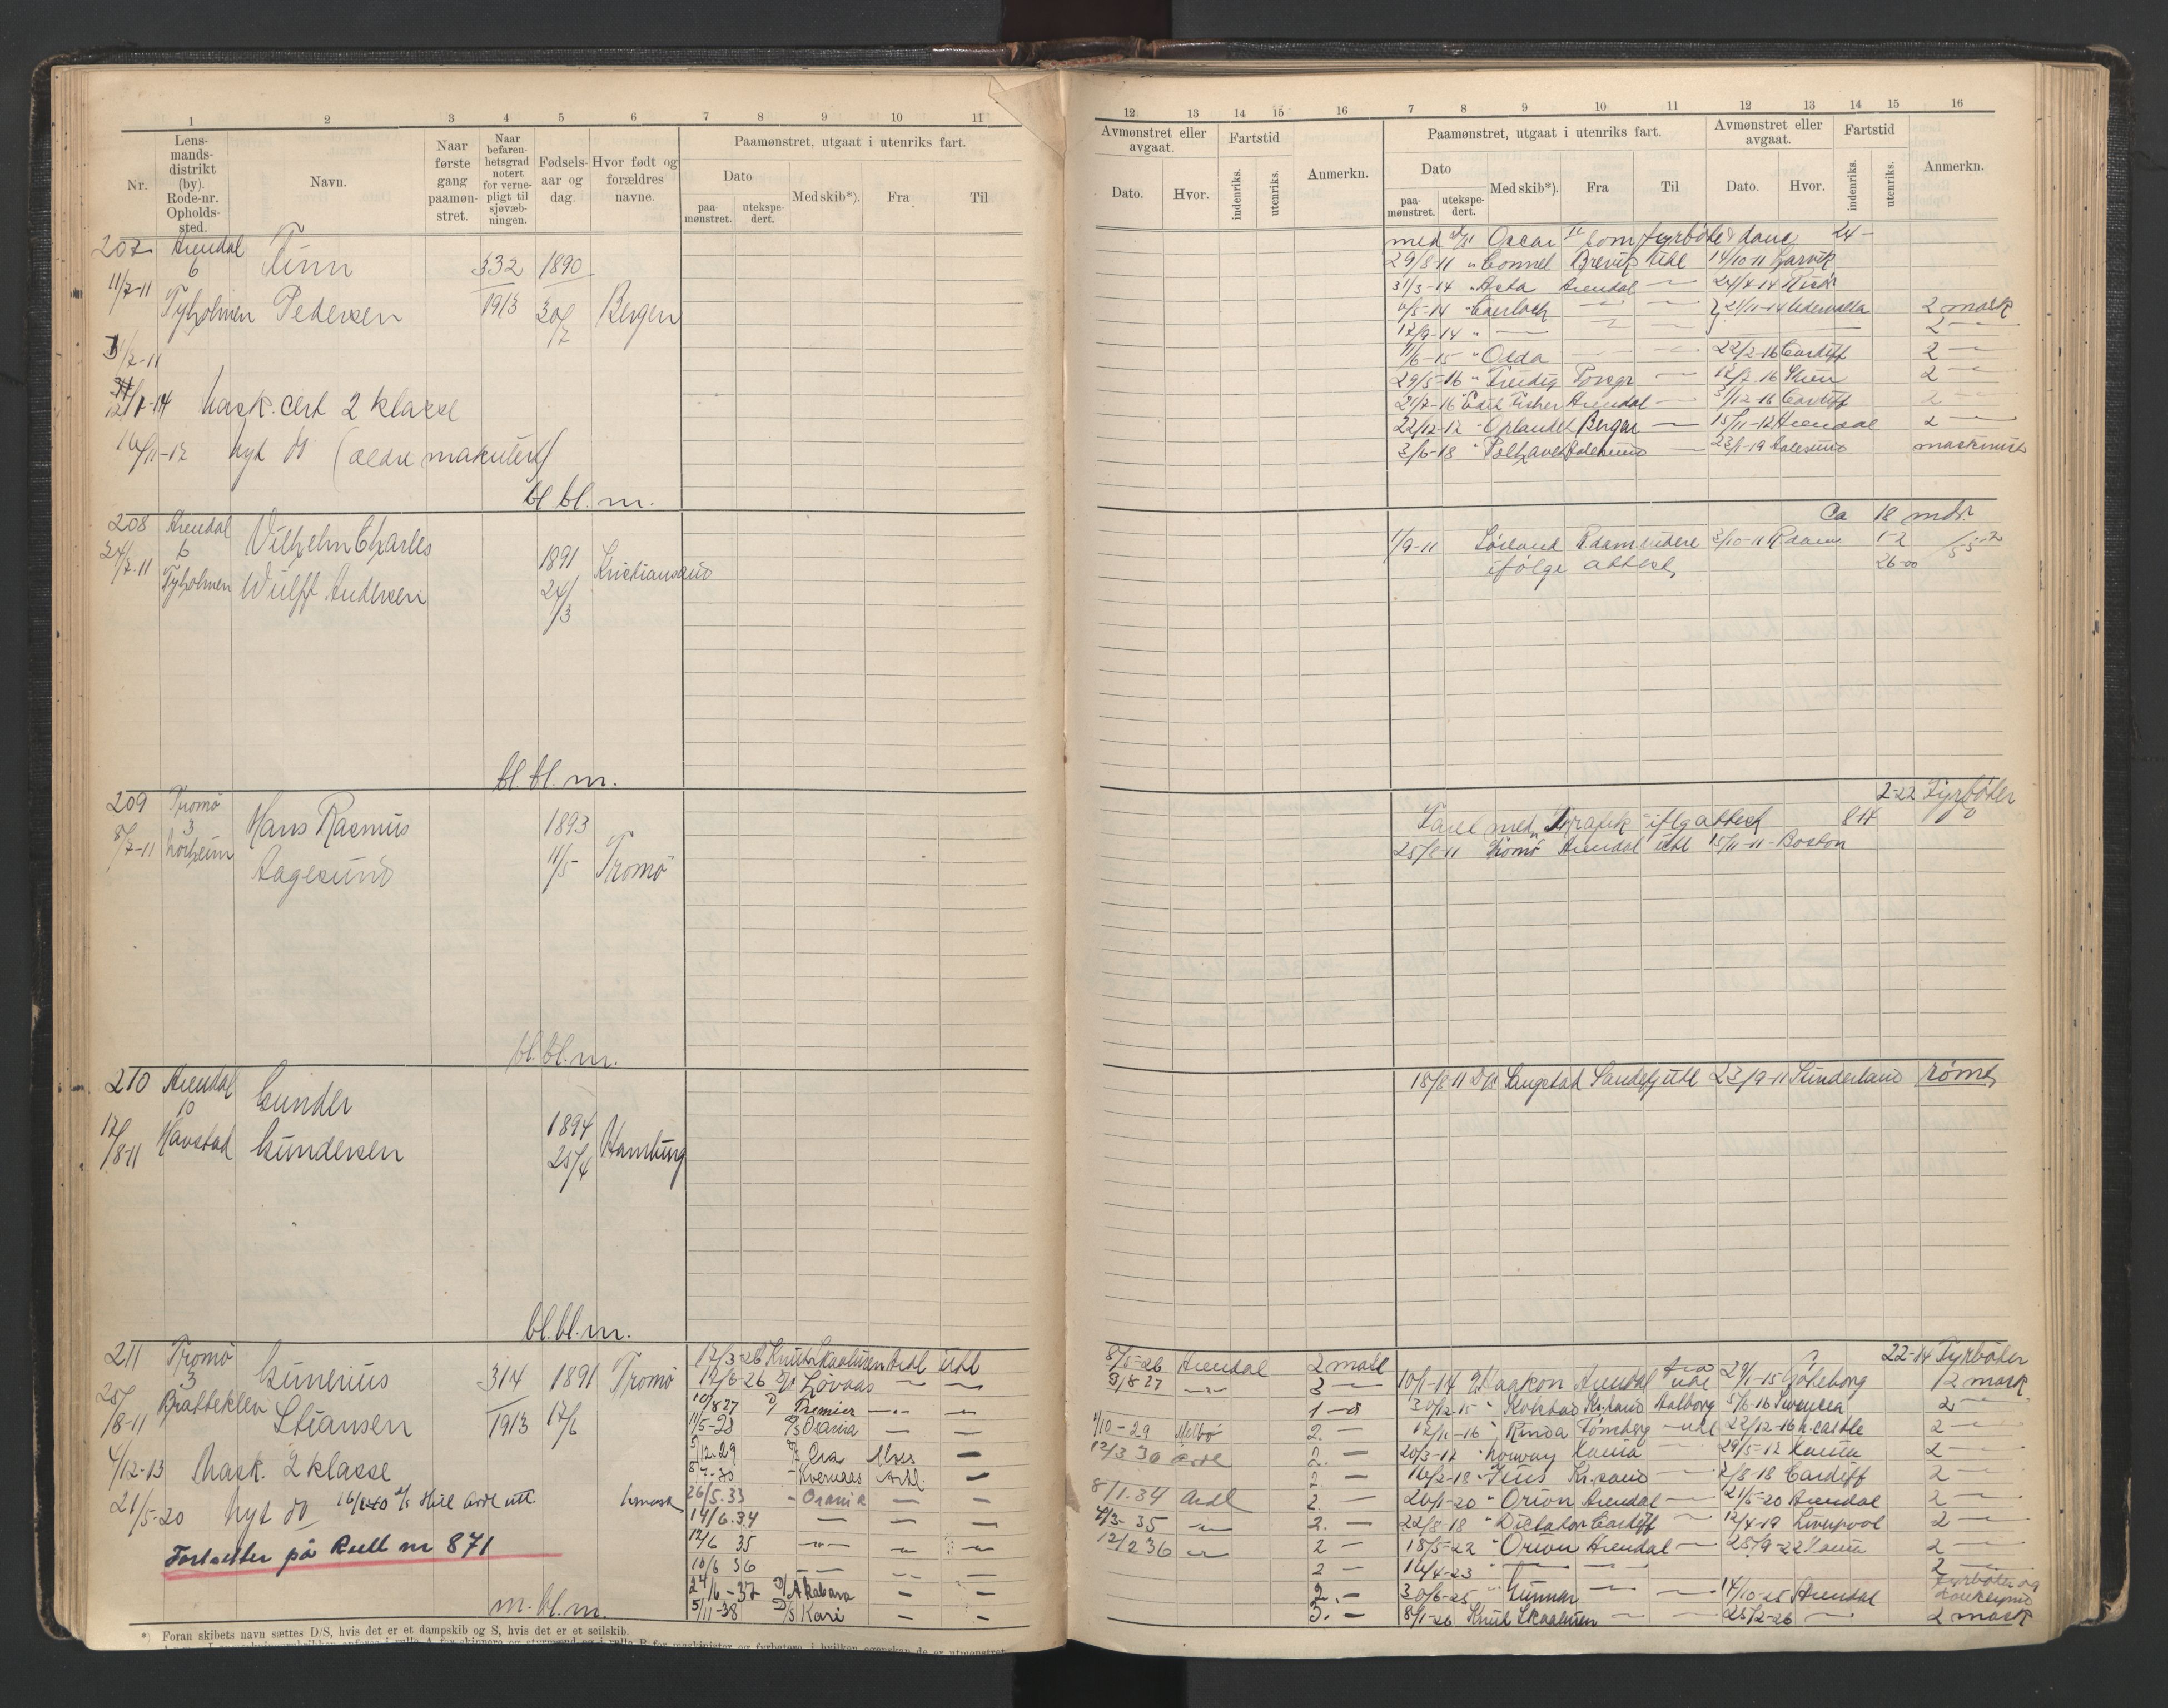 1 2 3 4 5 6 7 8 9 10 11
Nr.
Lens-
mands-
distrikt
(by).
Rode-nr.
Opholds-
sted.
Navn.
Naar
første
gang
paamøn-
stret.
Naar
befaren-
hetsgrad
notert
for verne-
pligt til
sjøvæb-
ningen.
Fødsels-
aar og
dag.
Hvor født og
forældres
navne.
Paamønstret, utgaat i utenriks fart.
Dato
paa-
mønstret.
utekspe-
dert.
Med skib*).
Fra
Til
207 Arendal Finn 332 1890
6
11/7-11 Tyholmen Pedersen 1913 30/7 Bergen
11/7-11
Mask. cert 2 klasse
Nyt do (ældre makulert)
bl. bl. m.
208 Arendal Vilhelm Charles
6 1891 Kristiansand
24/7-11 Tyholmen Wulff Andersen 24/3
bl. bl. m.
209 Tromø Hans Rasmus 1893
3
8/7-11 Aagesund 11/5 Tromø
bl. bl. m.
210 Arendal Gunder
10 1894 Hamburg
17/8-11 Havstad Gundersen 25/4
bl. bl. m.
211 Tromø Gunerius 314 1891 Tromø
3
25/8-11 Bratteklev Stiansen 1913 17/6
4/12-13 Mask. 2 klasse
21/5-20 Nyt do
Fortsetter på Rull nr 871
m. bl. m.
17/3-26 Knut Skaaluren Ardl utl
12/6-26 D/S Løvaas — —
10/8 27 D/ Premier — —
11/5-28 D/S Osania — —
5/12-29 D/S Eva Moss —
Kvernaas Ardl. —
26/5.33 - Osania — —
14/6.34 — — —
12/6 35 — — —
10/6 36 — —
24/6-37 D/ Akabara — —
5/11-38 D/S Kari — —
*) Foran skibets navn sættes D/S, hvis det er et dampskib og S, hvis det er et seilskib.
12 13 14 15 16 7 8 9 10 11 12 13 14 15 16
Avmønstret eller
avgaat.
Dato.
Hvor.
Fartstid
indenriks.
utenriks.
Anmerkn.
Paamønstret, utgaat i utenriks fart.
Dato
paa-
mønstret.
utekspe-
dert.
Med skib*).
Fra
Til
Avmønstret eller
avgaat.
Dato.
Hvor.
Fartstid
indenriks.
utenriks.
Anmerkn.
med Oscar II som fyrbøter 24 -
29/8-11 " Connel Brevik Utl 14/10-11 Larvik
31/3-14 " Asta Arendal — 24/4-14 Risør
4/5-14 " — — 21/11-14 Udevalla 2 mask
12/9-14 " — — — 2 —
11/6-15 " Olda — — 22/2-16 Cardiff 2 —
29/5-16 " Freidig Porsgr — 12/7-16 Skien 2 —
21/7-16 " Edit Fisher Arendal — 31/12-16 Cardiff 2 —
22/12-17 " Oplandet Bergen — 15/11-17 Arendal 2 —
3/6-18 " Polhavet Aalesund — 23/1-19 Aalesund maskinist
Ca 18 mdr.
1/9-11 Sørland R.dam videre 3/10-11 R.dam 1-2
ifølge attest 26-00
2-22 Fyrbøter
Faret med ifølg attest
25/8-11 Tromø Arendal utl 15/11-11 Boston
18/8-11 D/S Sangstad Sandefj utl 23/9-11 Sunderland rømt
22-14 Fyrbøter
8/5-26 Arendal 2 mask
9/8 27 — 3 —
1 —
1/10-29 Melbø 2. —
12/3 30 Ardl 2. —
2 —
8/1.34 Ardl 2. —
4/3-35 — 2. —
12/2 36 — 2 —
2 —
2. —
3. —
10/1-14 Haakon Arendal utl 29/1-15 Gøteborg 2 mask
30/12.15 " Kolstad Kr.sand Aalborg 5/6-16 Swansea 2 —
12/11-16 " Rinda Tønsberg — utl 22/12-16 N.castle 2 —
20/3-17 " Norway — 29/5-17 2 —
16/2-18 " Kr.sand — 2/8-18 Cardiff 2 —
20/1-20 " Orion Arendal — 21/5-20 Arendal 2 —
22/8-18 " Dictator Cardiff — 12/4-19 Liverpool 2 —
18/5-22 " Orion Arendal — 25/9-22 2 —
16/4-23 " — — 2 —
30/6-25 " Gunnar — — 14/10-25 Arendal fyrbøter og
8/1-26 Knut Skaaluren — — 25/2-26 — 2 mask